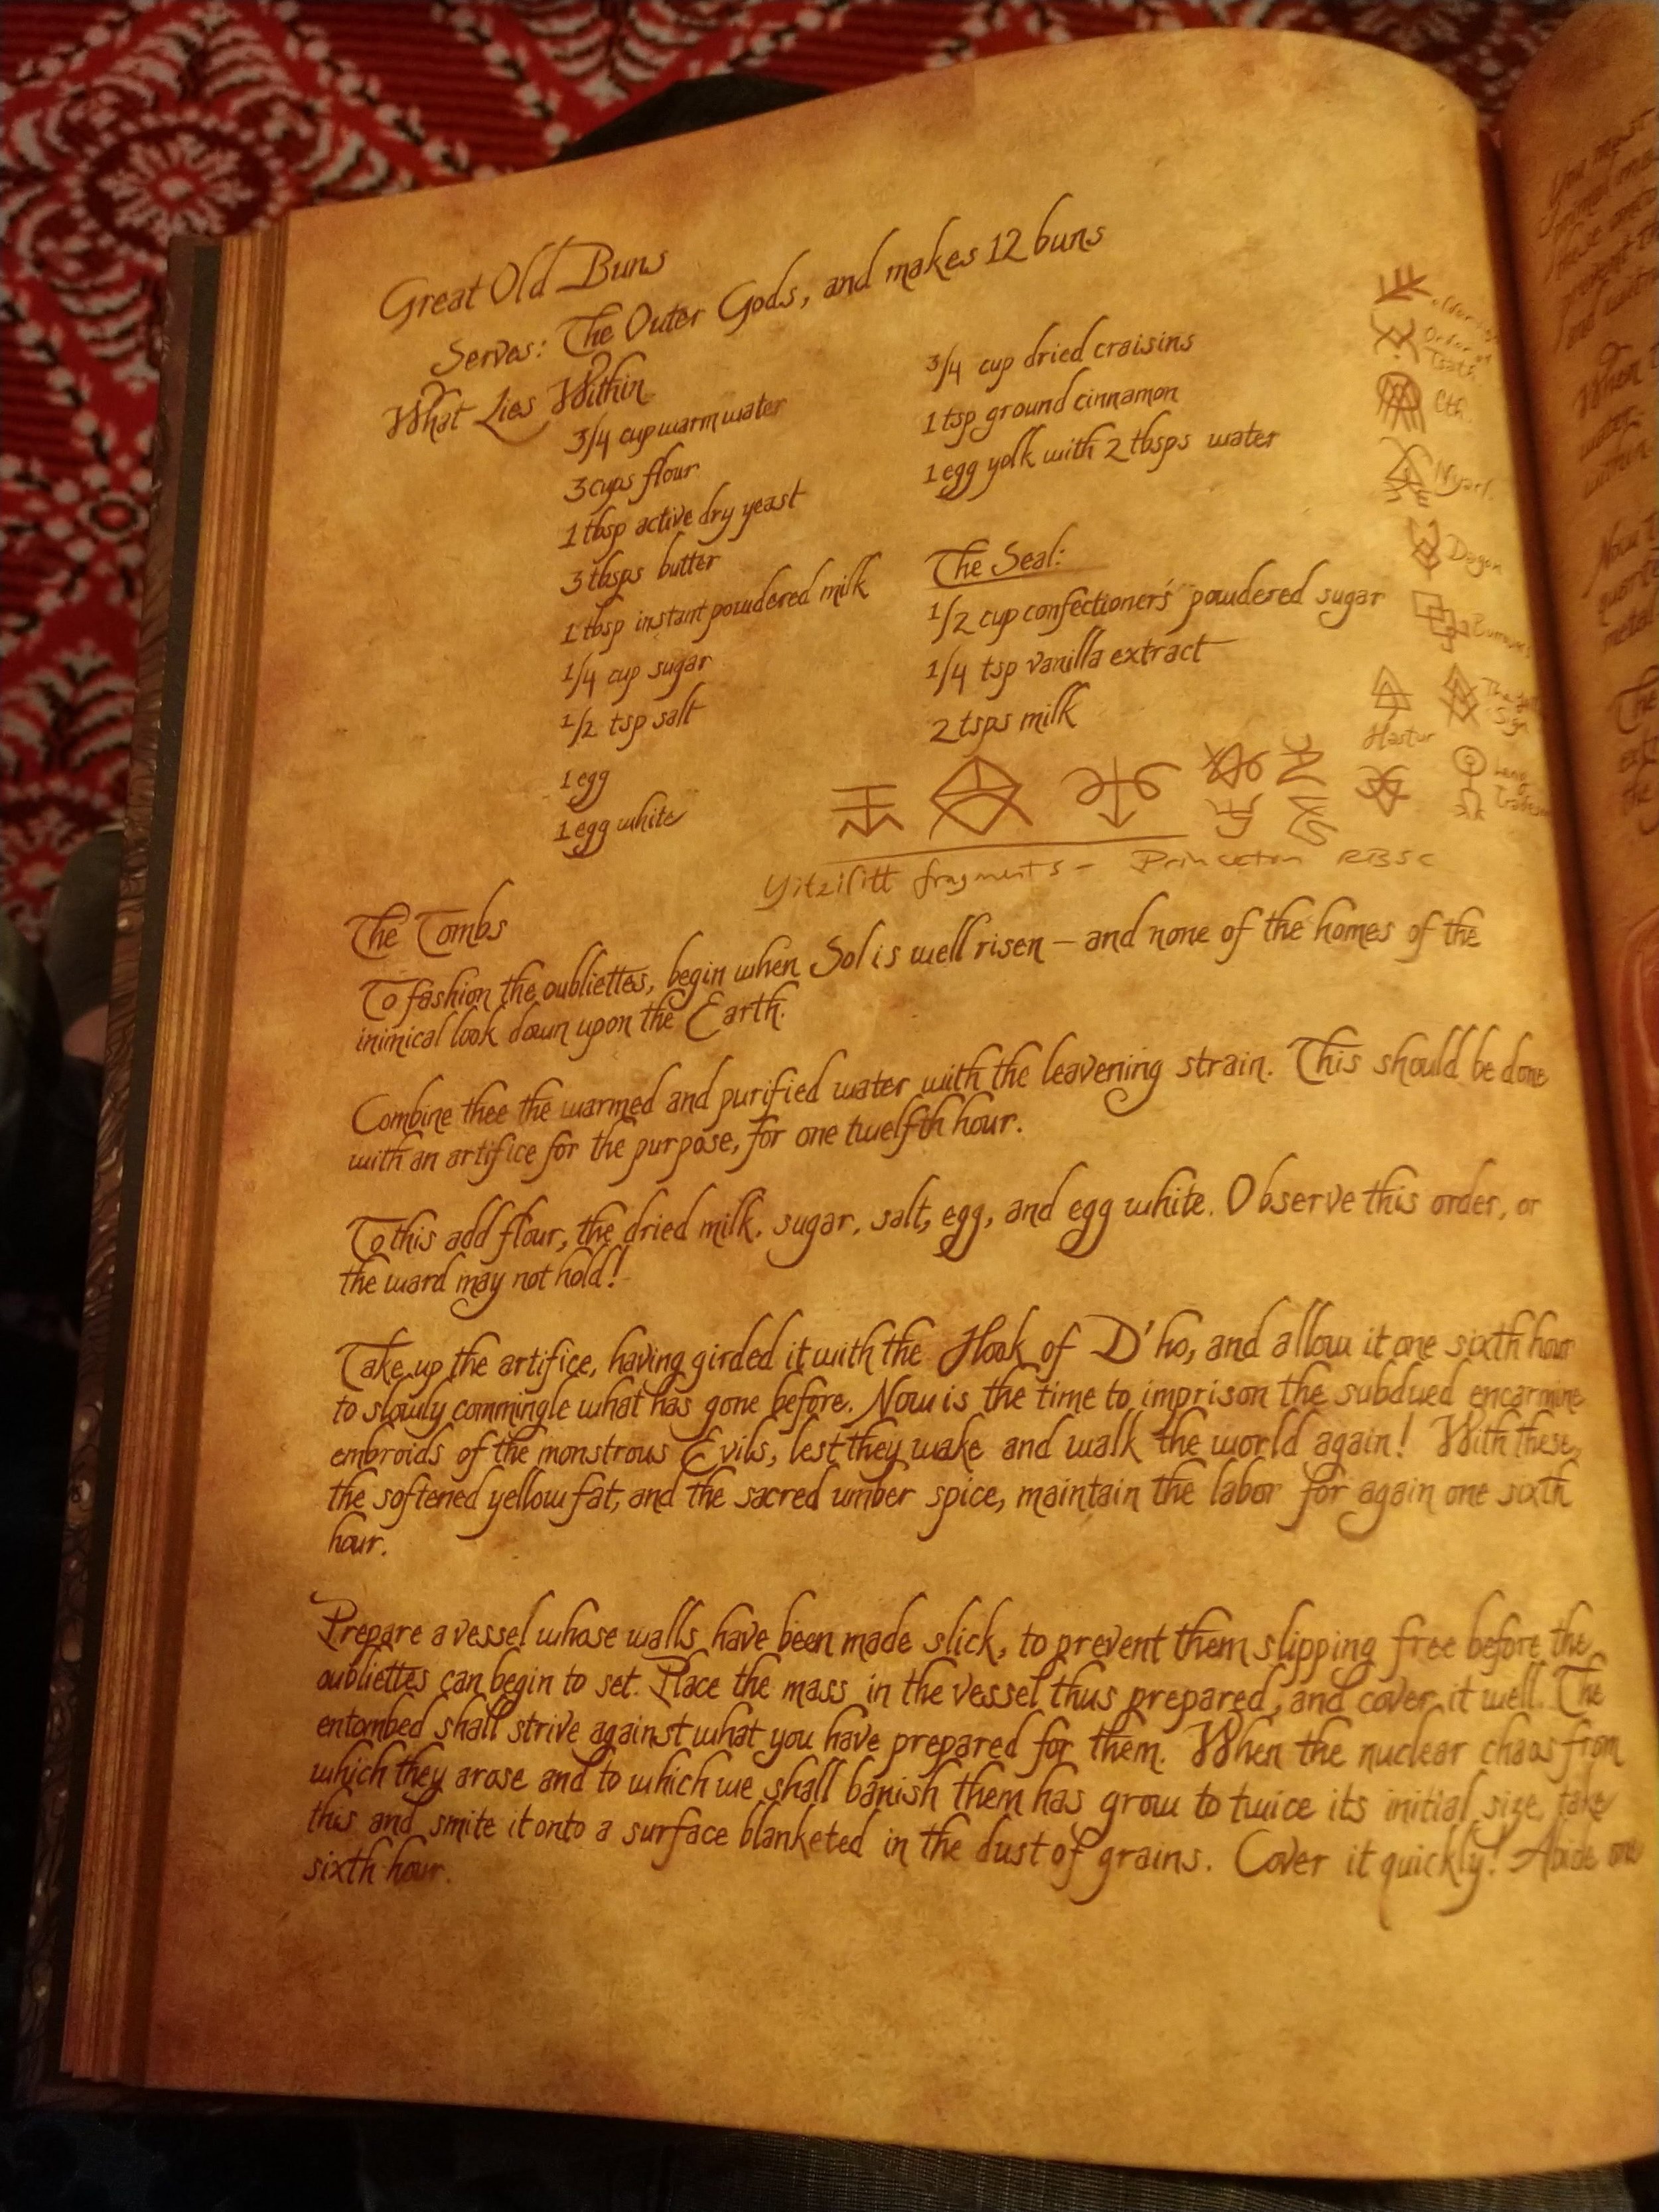 Great Old Buns
Serves: The Outer Gods, and makes 12 buns
What Lies Within
3/4 cup warm water
3 cups flour
1 tbsp active dry yeast
3 tbsps butter
1 tbsp instant powdered milk
1/4 cup sugar
1/2 tsp salt
1 egg
1 egg white
3/4 cup dried craisins
1 tsp ground cinnamon
1 egg yolk with 2 tbsps water
The Seal:
1/2 cup confectioner's powdered sugar
1/4 tsp vanilla extract
2 tsps milk
Order of
Tsath
Cth.
Nyarl.
Dagon
Hastur
Sign
Leng
Yitzilitt fragments - Princeton RBSC
The Tombs
To fashion the oubliettes, begin when Sol is well risen — and none of the homes of the
inimical look down upon the Earth.
Combine thee the warmed and purified water with the leavening strain. This should be done
with an artifice for the purpose, for one twelfth hour.
To this add flour, the dried milk, sugar, salt, egg, and egg white. Observe this order, or
the ward may not hold!
Take up the artifice, having girded it with the Hook of D'ho, and allow it one sixth hour
to slowly commingle what has gone before. Now is the time to imprison the subdued encarmine
embroids of the monstrous Evils, lest they wake and walk the world again! With these,
the softened yellow fat, and the sacred umber spice, maintain the labor for again one sixth
hour.
Prepare a vessel whose walls have been made slick, to prevent them slipping free before the
oubliettes can begin to set. Place the mass in the vessel thus prepared, and cover it well. The
entombed shall strive against what you have prepared for them. When the nuclear chaos from
which they arose and to which we shall banish them has grow to twice its initial size, take
this and smite it onto a surface blanketed in the dust of grains. Cover it quickly! Abide one
sixth hour.